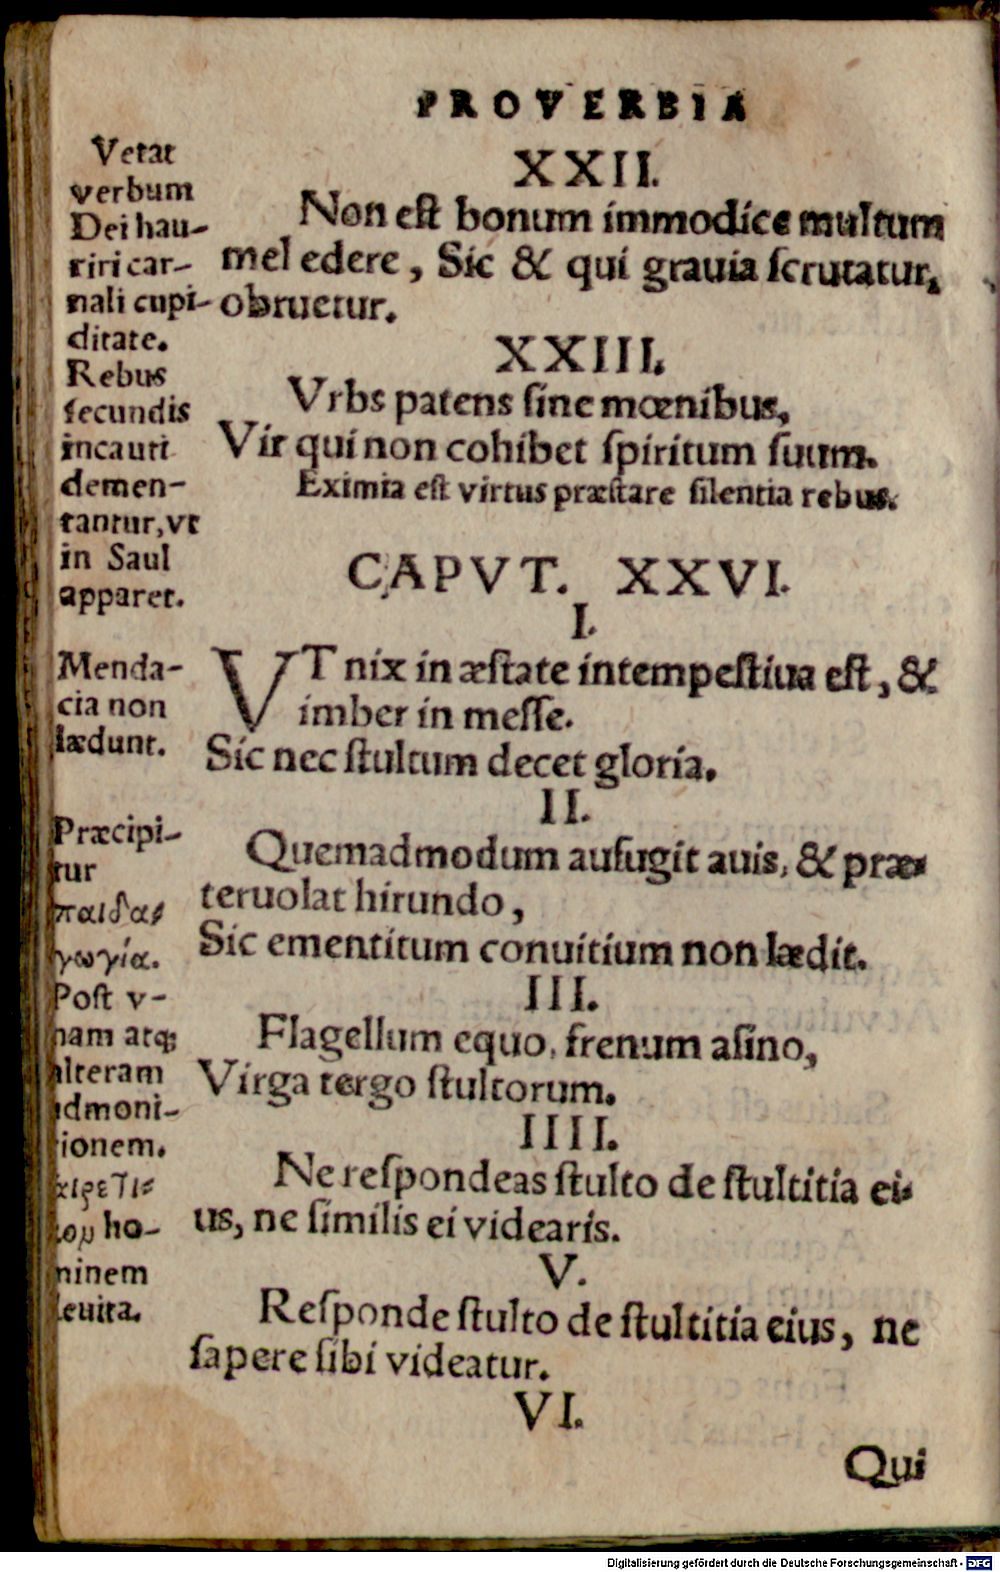 PROVERBIA
Vetat
verbum
Dei hau-
riri car-
nali cupi-
ditate.
Rebus
ſecundis
incauti
demen-
tantur, vt
in Saul
apparet.
Menda-
cia non
lædunt.
Præcipi-
tur
παιδα-
γωγία.
Poſt v-
nam atq;
alteram
admoni-
tionem.
ho-
minem
deuita.
XXII.
Non eſt bonum immodice multum
mel edere, Sic & qui grauia ſcrutatur,
obruetur.
XXIII.
Vrbs patens ſine mœnibus,
Vir qui non cohibet ſpiritum ſuum.
Eximia eſt virtus præſtare ſilentia rebus.
CAPVT. XXVI.
I.
VT nix in æſtate intempeſtiua eſt, &
imber in meſſe.
Sic nec ſtultum decet gloria.
II.
Quemadmodum aufugit auis, & præ-
teruolat hirundo,
Sic ementitum conuitium non lædit.
III.
Flagellum equo, frenum aſino,
Virga tergo ſtultorum.
IIII.
Ne reſpondeas ſtulto de ſtultitia ei-
us, ne ſimilis ei videaris.
V.
Reſponde ſtulto de ſtultitia eius, ne
ſapere ſibi videatur.
VI.
Qui
Digitalisierung gefördert durch die Deutsche Forschungsgemeinschaft - DFG